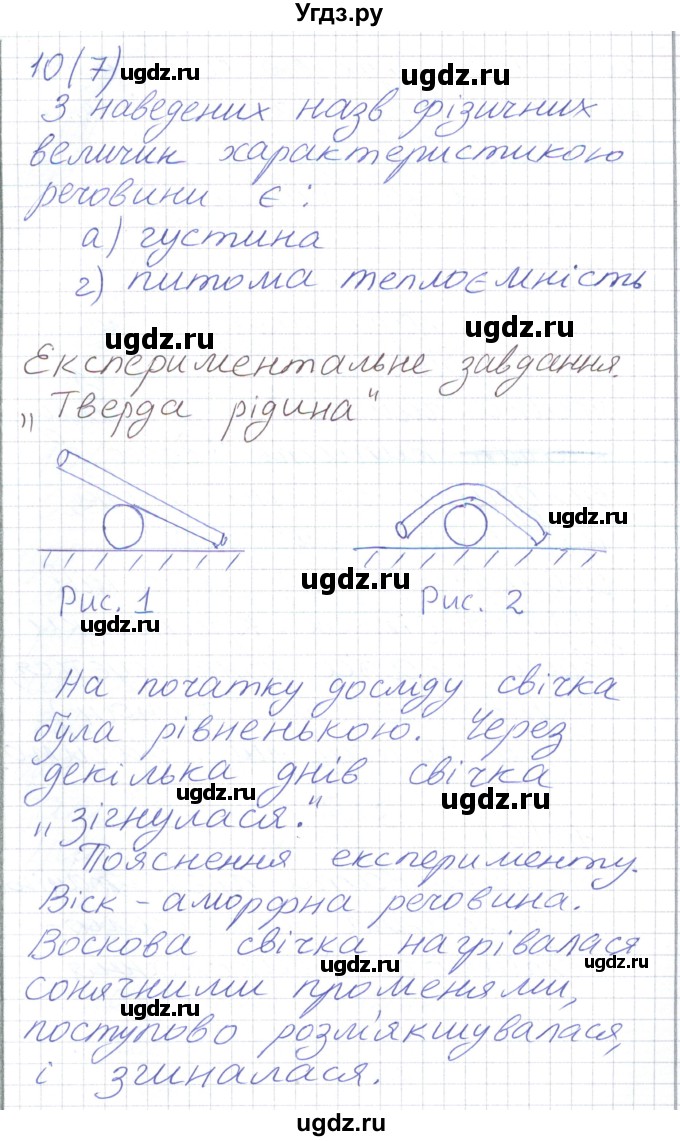 Угдз.ру
10(7) ugdz.ru
ugdz.ru
З наведених назв фізичних
величин характеристикою
речовини є:
а) густина
г) питома теплоємність
ugdz.ru ugdz.ru
Експериментальне завдання.
„Тверда рідина"
ugdz.ru
ugdz.ru
Рис. 1 Рис. 2
ugdz.ru
На початку досліду свічка
була рівненькою. Через
декілька днів свічка
ugdz.ru ugdz.ru
„зігнулася."
Пояснення експерименту.
Віск - аморфна речовина.
Воскова свічка нагрівалася
ugdz.ru ugdz.ru
сонячними променями,
ugdz.ru
поступово розм'якшувалася,
і згиналася.
ugdz.ru